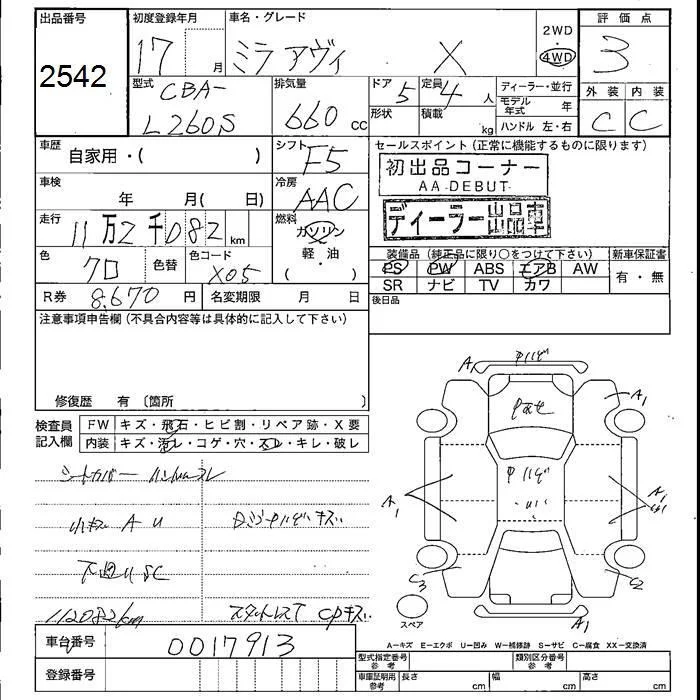 出品番号 初度登録年月 車名・グレード 評価点
2542 17 年 月 ミラ アヴィ X 2WD 4WD 3
型式 CBA- L260S 排気量 660 cc ドア 5 定員 4 人 ディーラー・並行 外装 内装
形状 積載 kg モデル年式 年 C C
ハンドル 左・右
車歴 自家用・( ) シフト F5 セールスポイント (正常に機能するものに限ります)
初出品コーナー
AA-DEBUT-
車検 年 月( 日) 冷房 AAC
ディーラー出品車
走行 11万2千082 km 燃料 ガソリン 軽・油 ( )
色 クロ 色替 色コード X05
装備品 (純正品に限り○をつけて下さい) 新車保証書
PS PW ABS エアB AW 有・無
SR ナビ TV カワ
R券 8,670 円 名変期限 月 日 後日品
注意事項申告欄 (不具合内容等は具体的に記入して下さい)
修復歴 有 〔箇所 〕
検査員記入欄 FW キズ・飛石・ヒビ割・リペア跡・X要
内装 キズ・汚レ・コゲ・穴・スレ・キレ・破レ
シートカバー ハンドルスレ
小キズ A U
下廻りSC
112082km スタットレスT CPキズ
車台番号 0017913
登録番号
A1
A1
A1
A1
C3
C2
スペア A1
A−キズ E−エクボ U−凹み W−補修跡 S−サビ C−腐食 XX−交換済
型式指定番号 参考 類別区分番号 参考
車庫証明用 参考 長さ cm 幅 cm 高さ cm